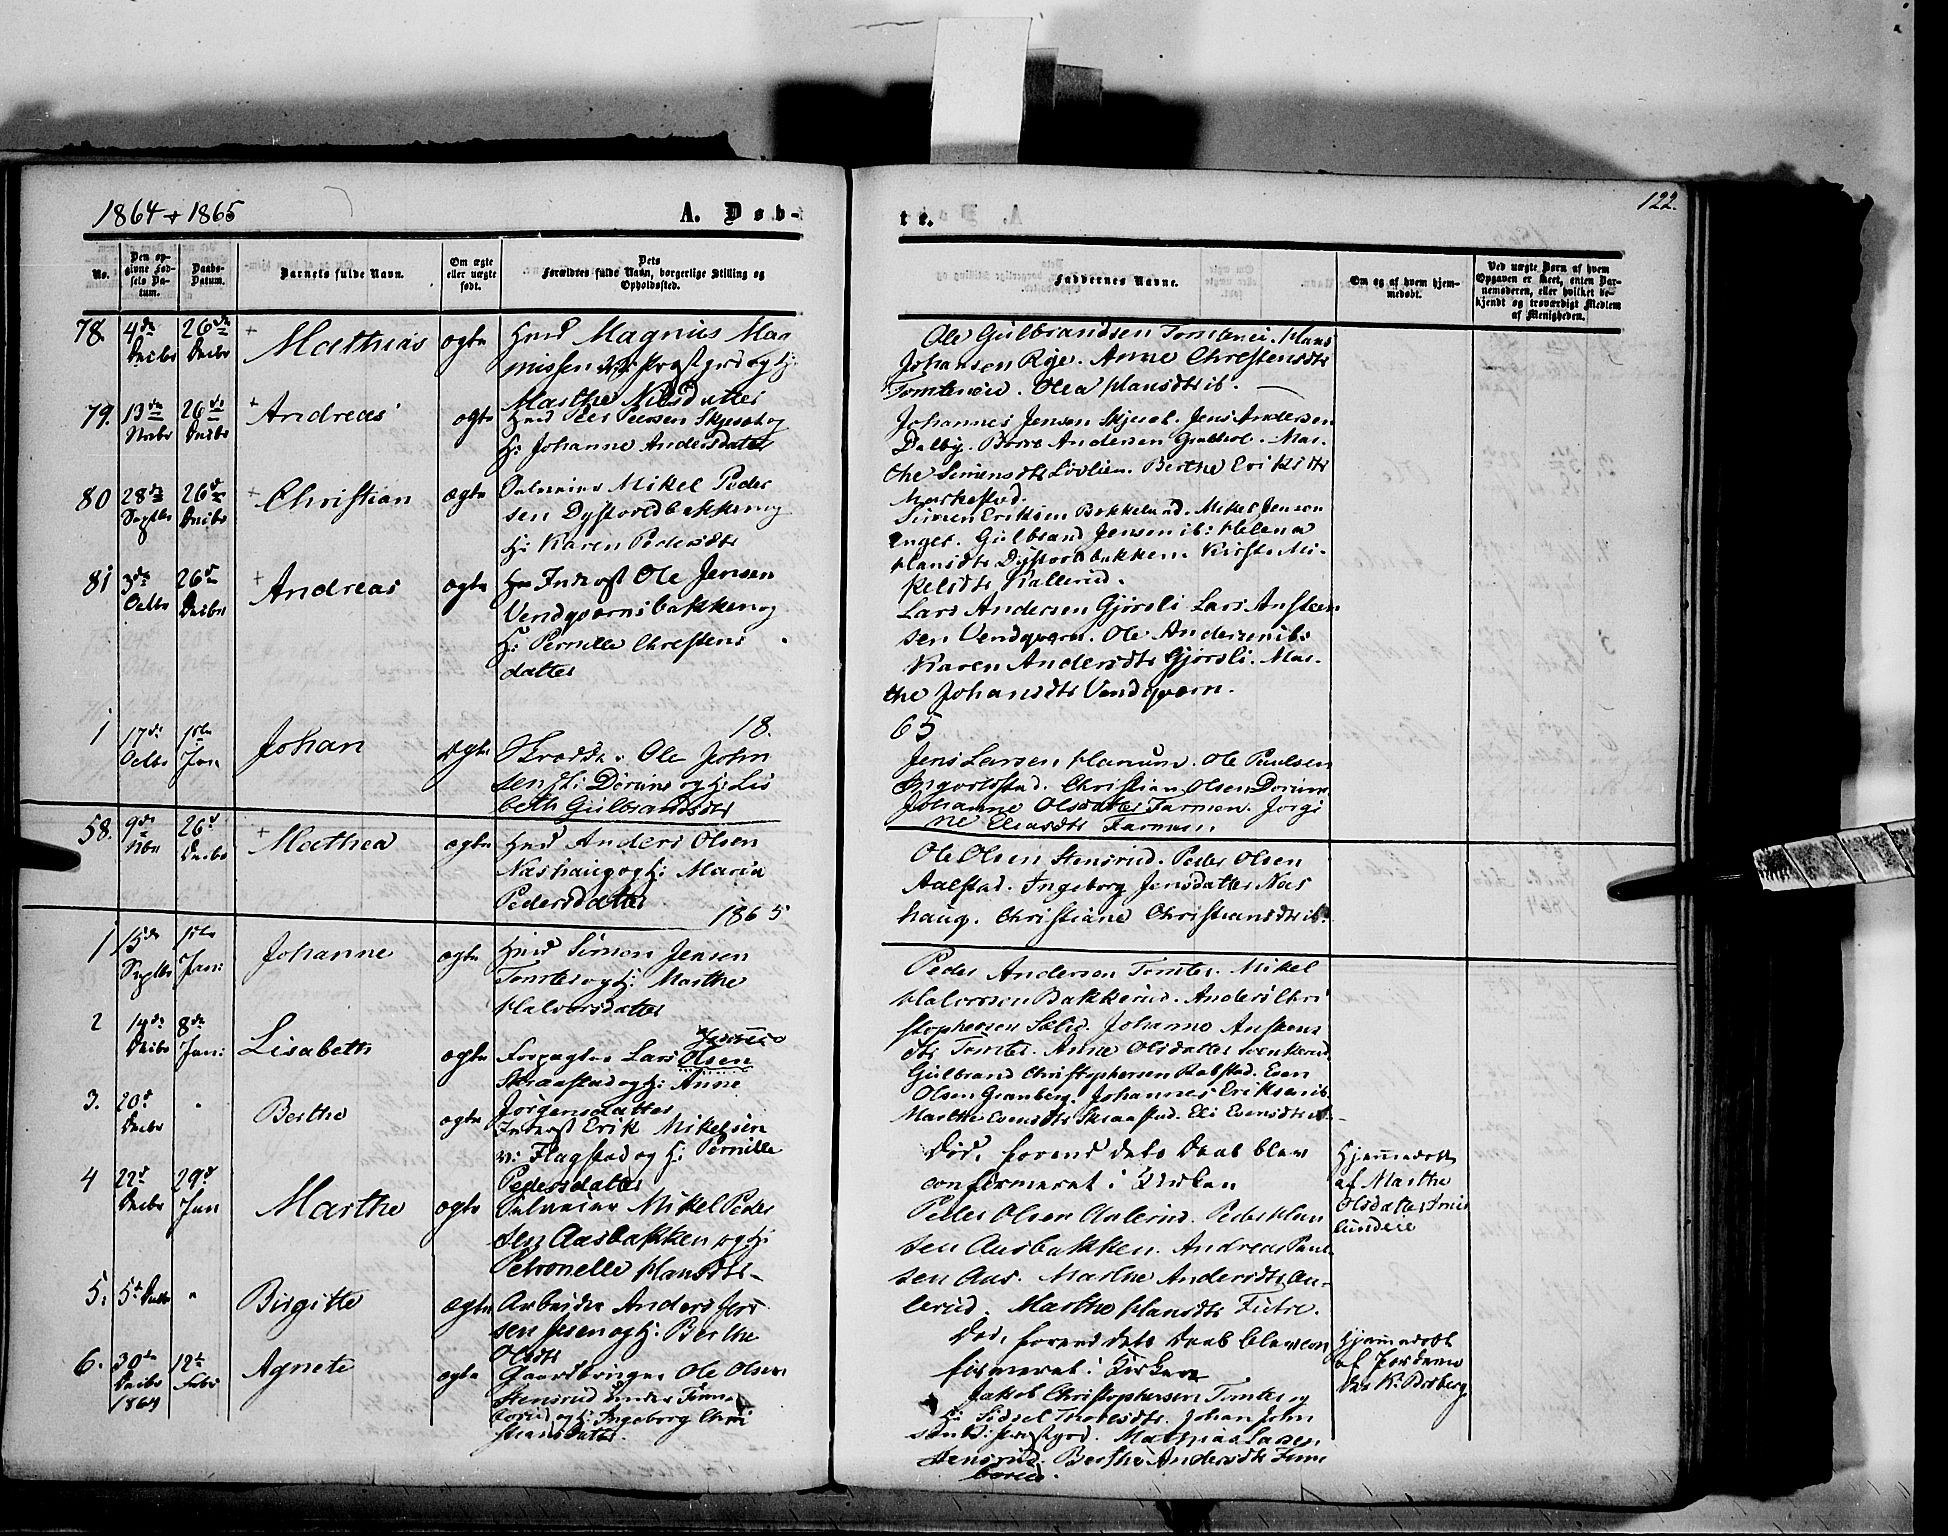 1864 + 1865
A. Døb-
te.
122.
No.
Den op-
givne Fød-
sels Da-
tum.
Daabs-
Datum.
Barnets fulde Navn.
Om ægte
eller uægte
født.
Dets
Forældres fulde Navn, borgerlige Stilling og
Opholdssted.
Faddernes Navne.
Om og af hvem hjem-
medøbt.
Ved uægte Børn af hvem
Opgaven er skeet, enten Bar-
nemoderen, eller hvilket be-
kjendt og troværdigt Medlem
af Menigheden.
78. 4de Decbr 26de Decbr Mathias ægte
Huusm Magnus Mag
nussen Præstgrd og H:
Marthe Nilsdatter
Ole Gulbrandsen Tomtenei. Hans
Johansen Rye. Anne Christensdtr
Tomteneie. Olea Hansdtr ib.
79. 13de Novbr 26de Decbr Andreas ægte
Huusm Peer Peersen Skjeset og
H: Johanne Andersdatter
Johannes Jensen Skjeset. Jens Andersen
Dalby. Andersen. Mar-
the Simensdtr Lövlien. Berthe Eriksdtr
Markestad.
80 28de Septbr 26de Decbr Christian ægte
Selveier Mikel Peder
sen Dystvoldbakken og
H: Karen Pedersdtr
Simen Eriksen Bakkelund. Mikel Jensen
Enget. Gulbrand Jensen ib: Helena
Hansdtr Dystvoldbakken. Kirsti Mi-
kelsdtr Kallerud.
81 3de Octbr 26de Decbr Andreas ægte
Inderst Ole Jensen
Vendqværnsbakken og
H: Pernille Christens
datter
Lars Andersen Gjörsli. Lars Ansteen
sen Vendqværn. Ole Andersen ib:
Karen Andersdtr Gjörsli. Mar-
the Johansdtr Vendqværn.
18.
65
1 17de Octbr 1ste Jan Johan ægte
Skrædder Ole John
sen Dörum og H: Lis
beth Gulbrandsdtr
Jens Larsen Hanum. Ole Paulsen
Ingvoldstad. Christian Olsen Dörum
Johanne Olsdatter Farmen. Jörgi
ne Eliasdtr Farmen.
58. 9de Nbr 26de Decbr Mathea ægte
Huusm Anders Olsen
Næshaug og H: Maria
Pedersdatter
Ole Olsen Stensrud. Peder Olsen
Aalstad. Ingeborg Jensdatter Næs
haug. Christiane Christiansdtr ib.
1865
1 15de Septbr 1ste Jan: Johanne ægte
Huusm Simon Jensen
Tomter og H: Marthe
Halvorsdatter
Peder Andersen Tomter. Mikel
Halvorsen Bakkerud. Anders Chri
stophersen Sælid. Johanne Anstens
dtr Tomter. Anne Olsdatter
2 14de Decbr 8de Jan: Lisabeth ægte
Forpagter Lars Olsen
Skraastad og H: Anne
Jörgensdatter
Gulbrand Christophersen Rolstad. Even
Olsen Granberg. Johannes Eriksen ib
Marthe Evensdtr Skraastad. Eli Evensdtr ib
3. 20de Decbr " Berthe ægte
Inderst Erik Mikelsen
v: Flagstad og H: Pernille
Pedersdatter
Död, forend dets Daab blev
confirmeret i Kirken
Hjemmedöbt
af Marthe
Olsdatter
lundeie
4 22de Decbr 29de Jan Marthe ægte
Selveier Mikel Peder
sen Aasbakken og H:
Petronelle Hansdtr
Peder Olsen Aulerud. Peder Han
sen Aasbakken. Andreas Paul
sen Aas. Marthe Andersdtr Au-
lerud. Marthe Hansdtr
5. 5te Decbr " Birgitte ægte
Arbeider Anders Jen
sen og H: Berthe
Olsdtr
Död, forend dets Daab blev con
firmeret i Kirken
Hjemmedöbt
af Jordemo
der K: Borberg
6. 30te Decbr 1864 12te Febr Agnete ægte
Gaardbruger Ole Olsen
Stensrud under Finne
borud og H: Ingeborg Chri
stiansdatter.
Jakob Christophersen Tomter og
H: Sidsel Thorsdtr. Johan John
sen Præstgrd. Mathias Larsen
Stensrud. Berthe Andersdtr Finne
borud.